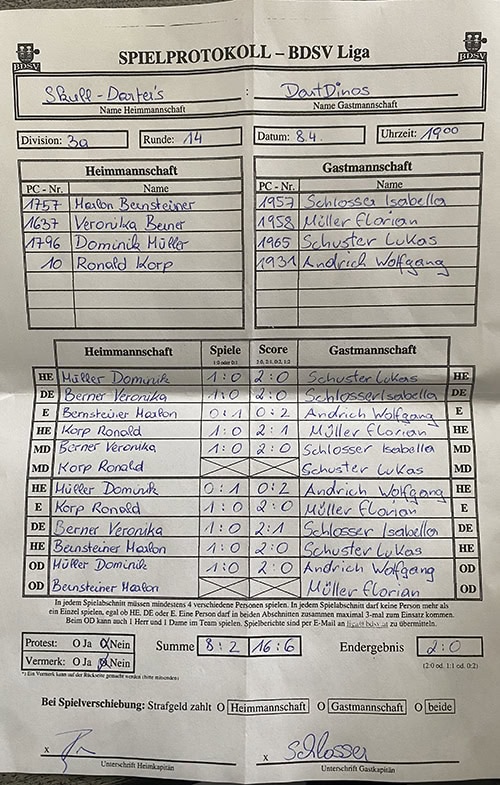 BDSV BDSV
SPIELPROTOKOLL – BDSV Liga
Skull-Darter's : DartDinos
Name Heimmannschaft Name Gastmannschaft
Division: 3a Runde: 14 Datum: 8.4. Uhrzeit: 19⁰⁰
Heimmannschaft Gastmannschaft
PC - Nr. Name PC - Nr. Name
1757 Marlon Bernsteiner 1957 Schlosser Isabella
1637 Veronika Berner 1958 Müller Florian
1796 Dominik Müller 1965 Schuster Lukas
10 Ronald Korp 1931 Andrich Wolfgang
Heimmannschaft Spiele Score Gastmannschaft
1:0 oder 0:1 2:0, 2:1, 0:2, 1:2
HE Müller Dominik 1:0 2:0 Schuster Lukas HE
DE Berner Veronika 1:0 2:0 Schlosser Isabella DE
E Bernsteiner Marlon 0:1 0:2 Andrich Wolfgang E
HE Korp Ronald 1:0 2:1 Müller Florian HE
MD Berner Veronika 1:0 2:0 Schlosser Isabella MD
MD Korp Ronald Schuster Lukas MD
HE Müller Dominik 0:1 0:2 Andrich Wolfgang HE
E Korp Ronald 1:0 2:0 Müller Florian E
DE Berner Veronika 1:0 2:1 Schlosser Isabella DE
HE Bernsteiner Marlon 1:0 2:0 Schuster Lukas HE
OD Müller Dominik 1:0 2:0 Andrich Wolfgang OD
OD Bernsteiner Marlon Müller Florian OD
In jedem Spielabschnitt müssen mindestens 4 verschiedene Personen spielen. In jedem Spielabschnitt darf keine Person mehr als
ein Einzel spielen, egal ob HE, DE oder E. Eine Person darf in beiden Abschnitten zusammen maximal 3-mal zum Einsatz kommen.
Beim OD kann auch 1 Herr und 1 Dame im Team spielen. Spielberichte sind per E-Mail an zu übermitteln.
Protest: O Ja O Nein Summe 8:2 16:6 Endergebnis 2:0
Vermerk: O Ja O Nein (2:0 od. 1:1 od. 0:2)
*) Ein Vermerk kann auf der Rückseite gemacht werden (bitte mitsenden)
Bei Spielverschiebung: Strafgeld zahlt O Heimmannschaft O Gastmannschaft O beide
x x Schlosser
Unterschrift Heimkapitän Unterschrift Gastkapitän